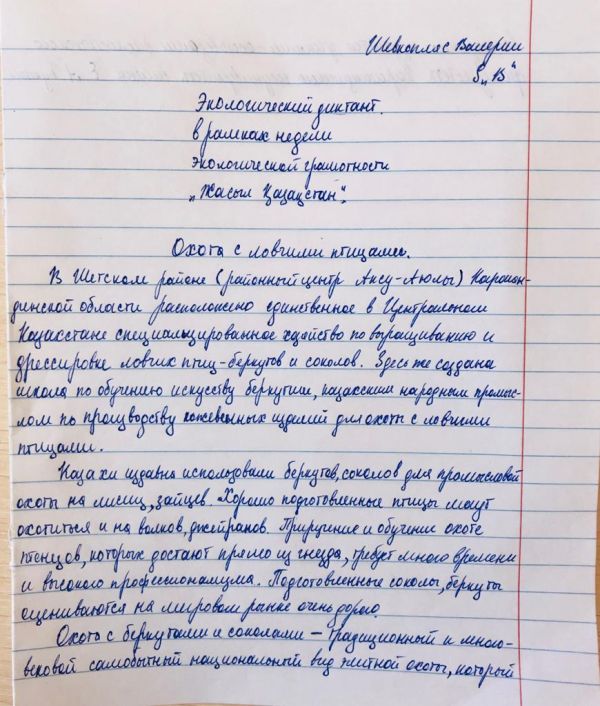 Шевкопляс Валерии
5 "В"
Экологический диктант.
в рамках недели
экологической грамотности
"Жасыл Қазақстан".
Охота с ловчими птицами.
В Шетском районе (районный центр Аксу-Аюлы) Караган-
динской области расположено единственное в Центральном
Казахстане специализированное хозяйство по выращиванию и
дрессировке ловчих птиц-беркутов и соколов. Здесь же создана
школа по обучению искусству беркутчи, казахским народным промыс-
лом по производству кожевенных изделий для охоты с ловчими
птицами.
Казахи издавна использовали беркутов, соколов для промысловой
охоты на лисиц, зайцев. Хорошо подготовленные птицы могут
охотиться и на волков, джейранов. Приручение и обучение охоте
птенцов, которых достают прямо из гнезда, требует много времени
и высокого профессионализма. Подготовленные соколы, беркуты
оцениваются на мировом рынке очень дорого.
Охота с беркутами и соколами – традиционный и много-
вековой самобытный национальный вид элитной охоты, который